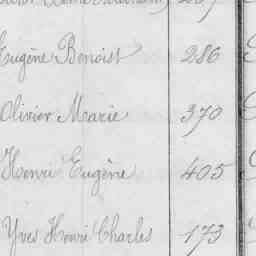 Eugène Benoist 286
Olivier Marie 370
Henri Eugène 405
Yves Henri Charles 173